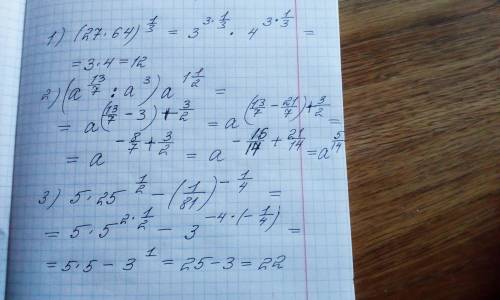 1) (27·64)^(1/3) = 3^(3·1/3) · 4^(3·1/3) =
= 3·4 = 12
2) (a^(13/7) : a^3) a^(1 1/2) =
= a^((13/7 - 3) + 3/2) = a^((13/7 - 21/7) + 3/2) =
= a^(-8/7 + 3/2) = a^(-16/14 + 21/14) = a^(5/14)
3) 5·25^(1/2) - (1/81)^(-1/4) =
= 5·5^(2·1/2) - 3^(-4·(-1/4)) =
= 5·5 - 3^1 = 25 - 3 = 22